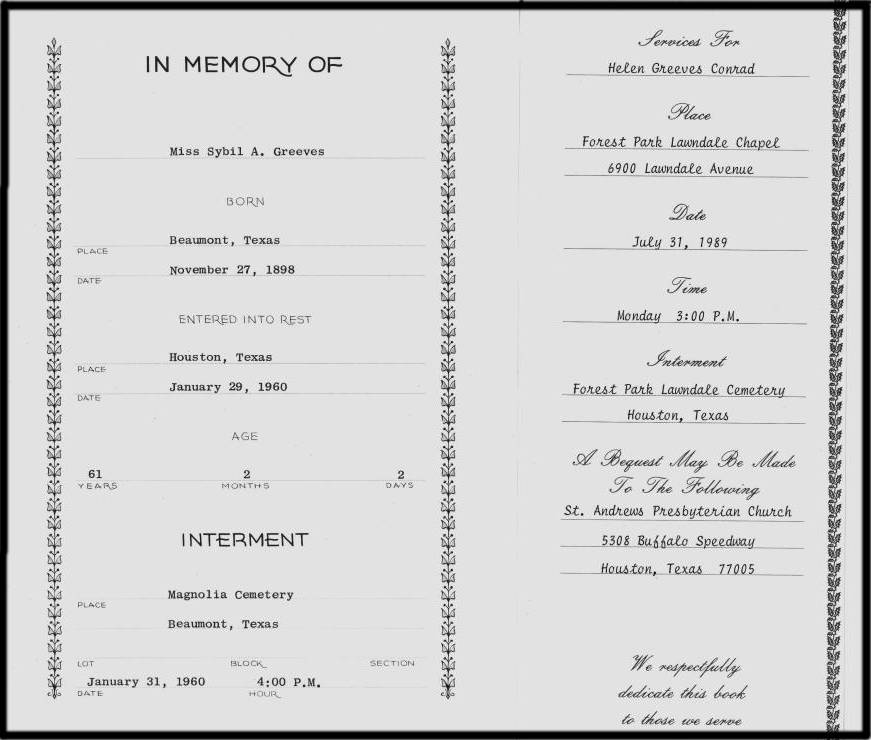 IN MEMORY OF
Miss Sybil A. Greeves
BORN
Beaumont, Texas
PLACE
November 27, 1898
DATE
ENTERED INTO REST
Houston, Texas
PLACE
January 29, 1960
DATE
AGE
61 2 2
YEARS MONTHS DAYS
INTERMENT
Magnolia Cemetery
PLACE
Beaumont, Texas
LOT BLOCK SECTION
January 31, 1960 4:00 P.M.
DATE HOUR
Services For
Helen Greeves Conrad
Place
Forest Park Lawndale Chapel
6900 Lawndale Avenue
Date
July 31, 1989
Time
Monday 3:00 P.M.
Interment
Forest Park Lawndale Cemetery
Houston, Texas
A Bequest May Be Made
To The Following
St. Andrews Presbyterian Church
5308 Buffalo Speedway
Houston, Texas 77005
We respectfully
dedicate this book
to those we serve